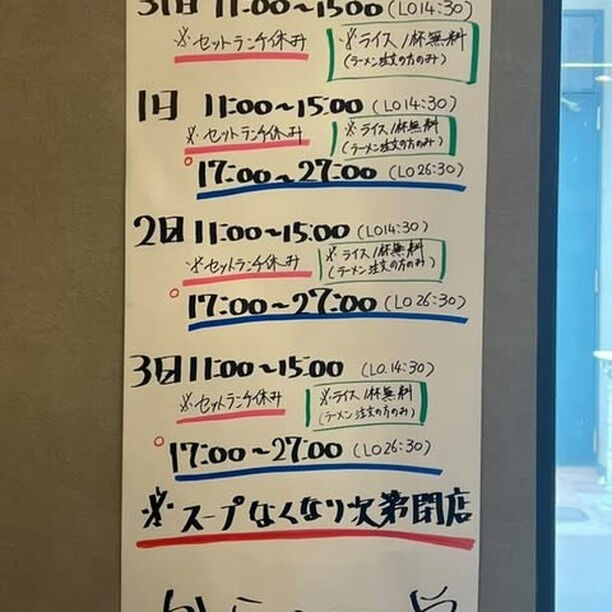 31日 11:00〜15:00 (LO14:30)
※セットランチ休み
※ライス1杯無料
(ラーメン注文の方のみ)
1日 11:00〜15:00 (LO14:30)
※セットランチ休み
※ライス1杯無料
(ラーメン注文の方のみ)
○ 17:00〜27:00 (LO26:30)
2日 11:00〜15:00 (LO14:30)
※セットランチ休み
※ライス1杯無料
(ラーメン注文の方のみ)
○ 17:00〜27:00 (LO26:30)
3日 11:00〜15:00 (LO.14:30)
※セットランチ休み
※ライス1杯無料
(ラーメン注文の方のみ)
○ 17:00〜27:00 (LO26:30)
※スープなくなり次第閉店